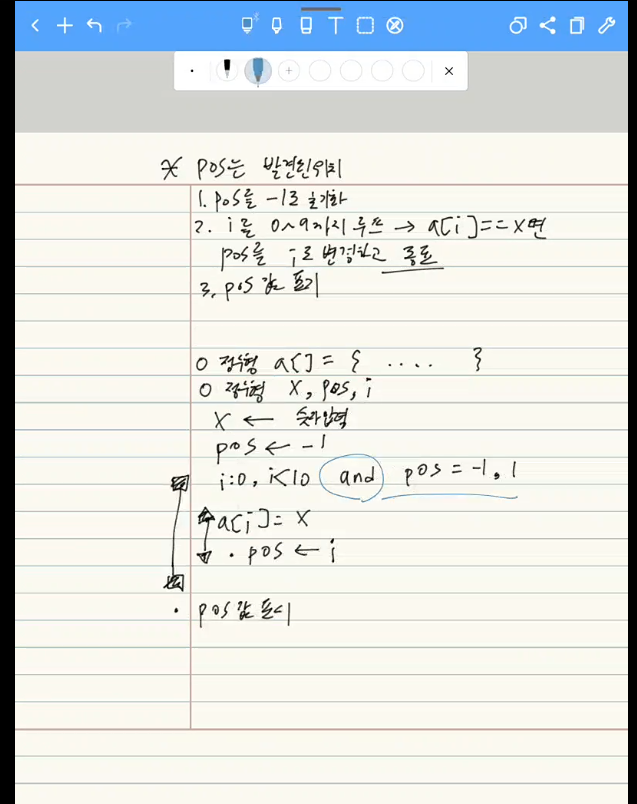 * pos는 발견된위치
1. pos를 -1로 초기화
2. i를 0~9까지 루프 → a[i]==x면
pos를 i로 변경하고 종료
3. pos 값 표기
○ 정수형 a[] = { .... }
○ 정수형 x, pos, i
x ← 숫자입력
pos ← -1
i:0, i<10 and pos = -1, 1
a[i] = x
· pos ← i
· pos 값 표시